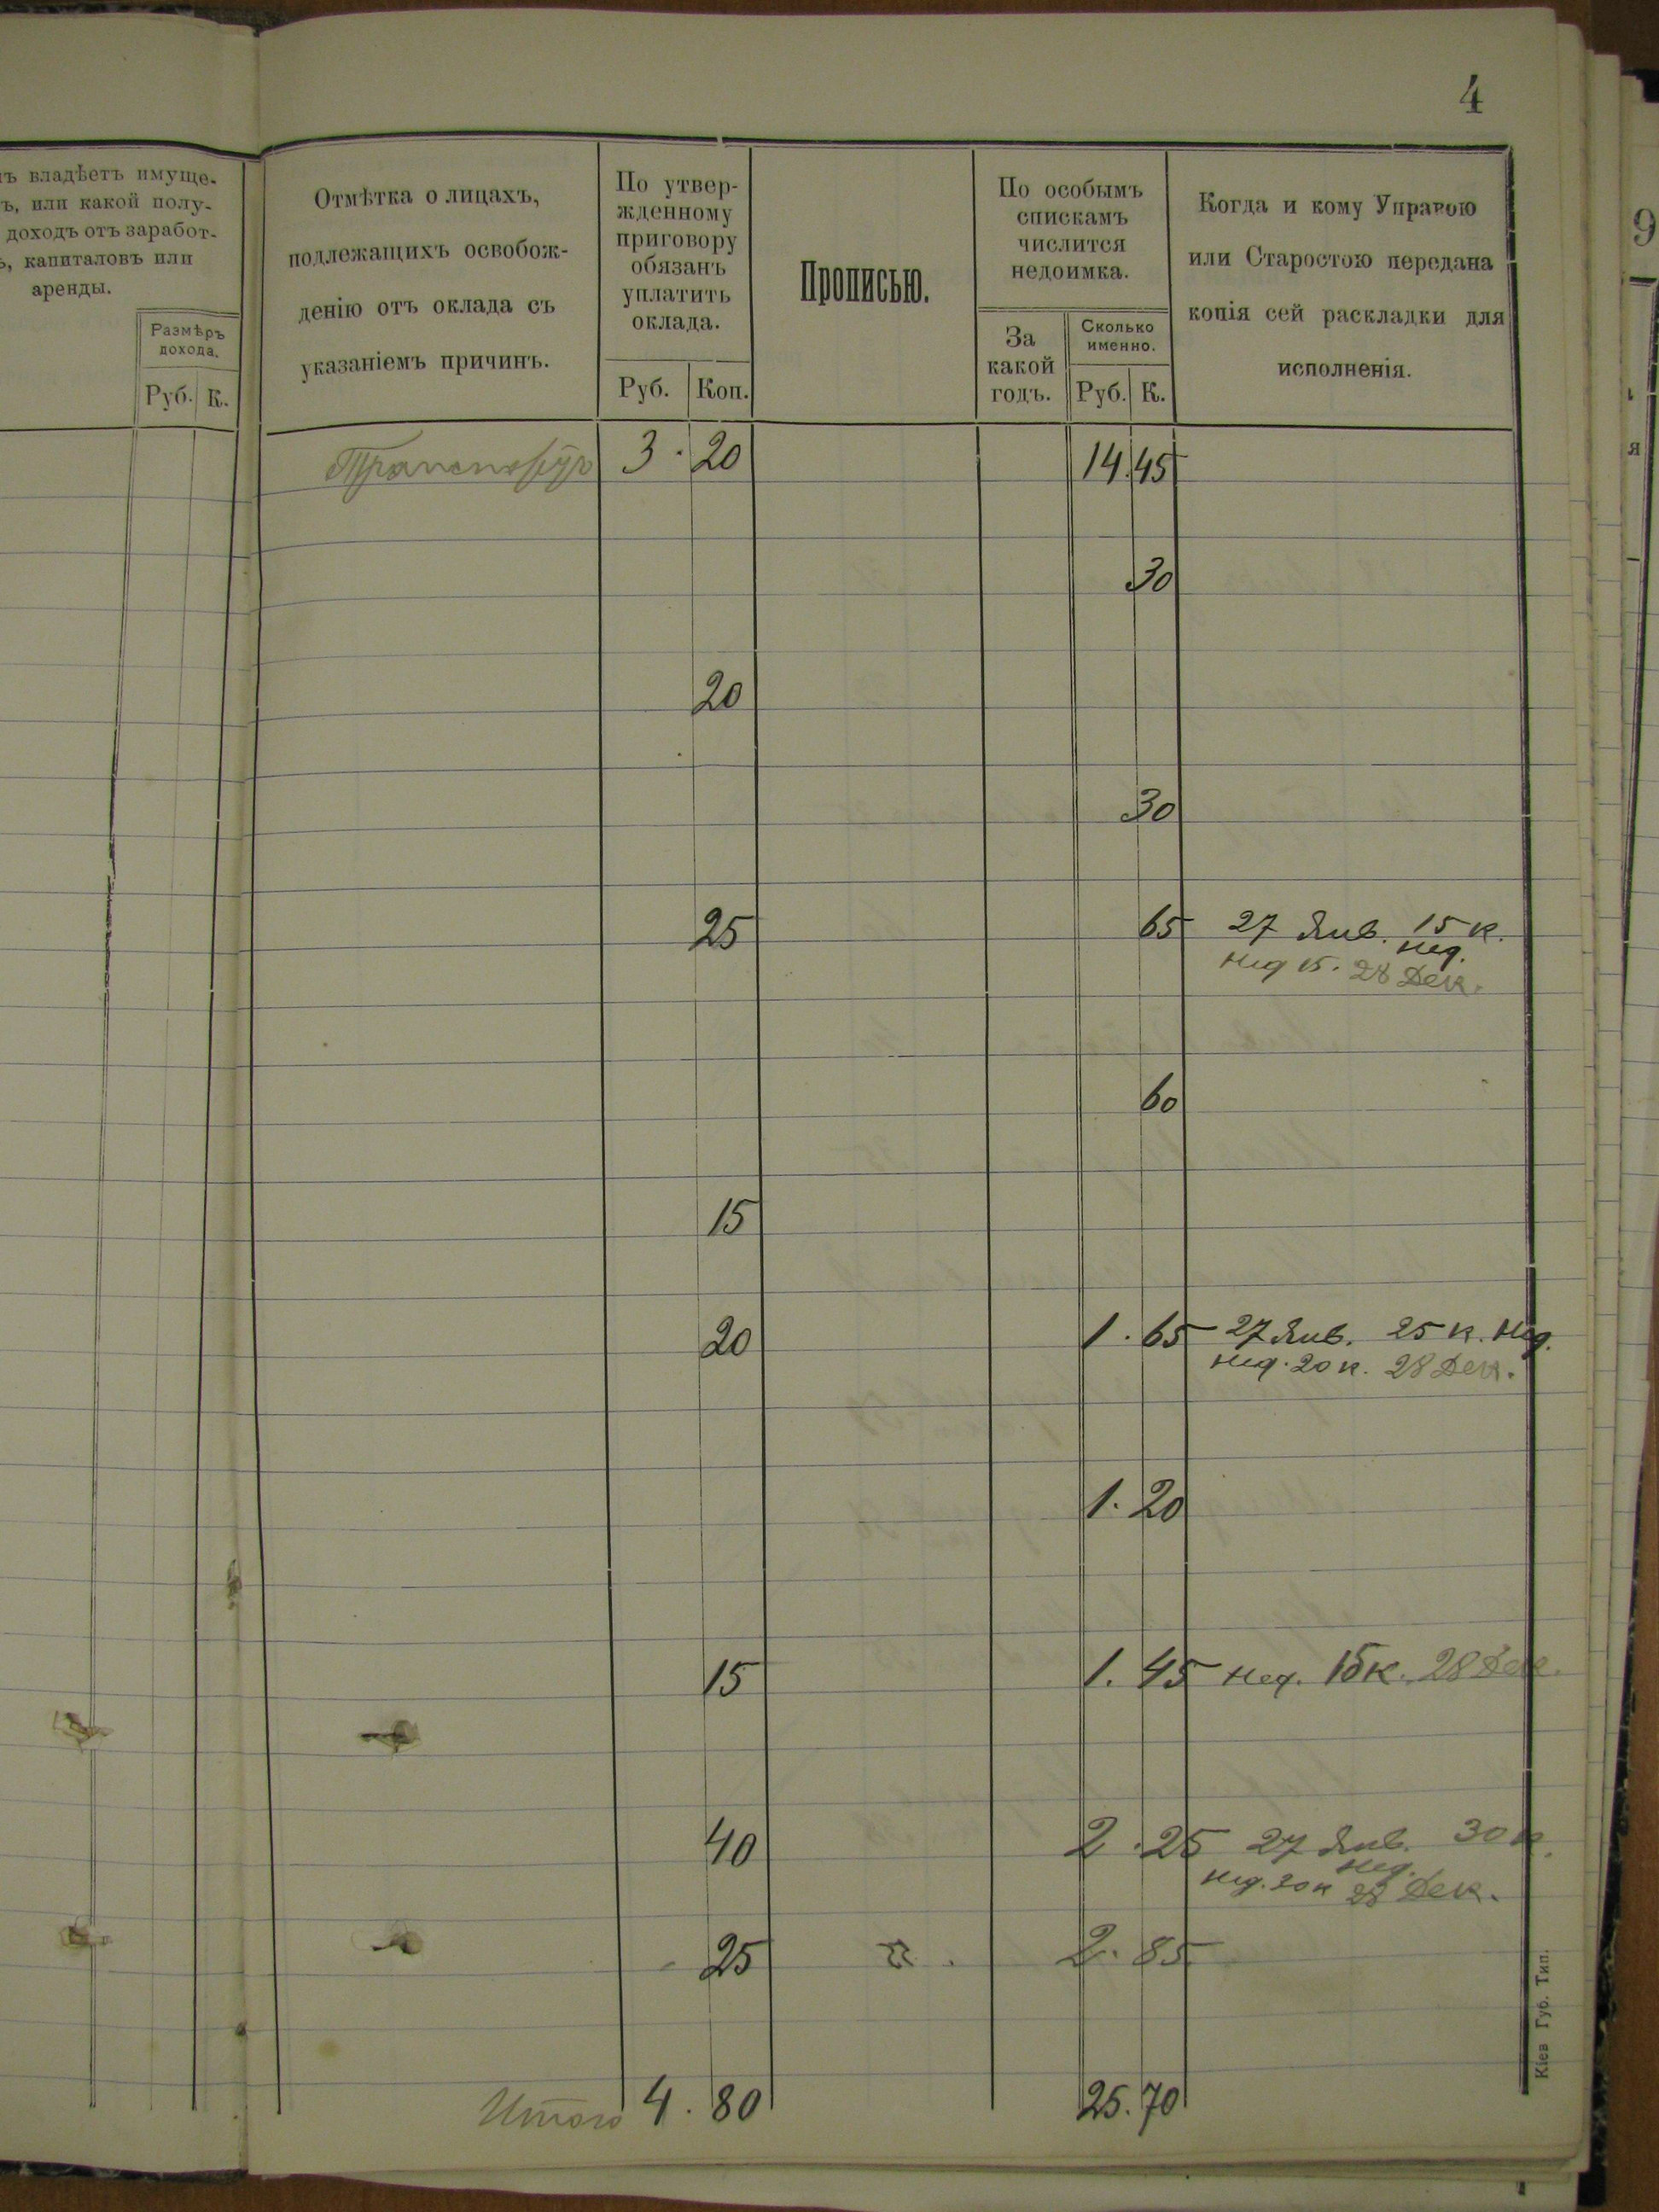 4
9
ъ владѣетъ имуще-
ъ, или какой полу-
доходъ отъ заработ-
ъ, капиталовъ или
аренды.
Размѣръ
дохода.
Руб. К.
Отмѣтка о лицахъ,
подлежащихъ освобож-
денію отъ оклада съ
указаніемъ причинъ.
По утвер-
жденному
приговору
обязанъ
уплатить
оклада.
Руб. Коп.
Прописью.
По особымъ
спискамъ
числится
недоимка.
За
какой
годъ.
Сколько
именно.
Руб. К.
Когда и кому Управою
или Старостою передана
копія сей раскладки для
исполненія.
я
3 . 20 14.45
30
20
30
25 65 27 Янв. 15 к.
нед.
нед 15. 28 Дек.
60
15
20 1 . 65 27 Янв. 25 к. нед.
нед. 20 к. 28 Дек.
1. 20
15 1. 45 нед. 15 к. 28 Дек.
40 2 . 25 27 Янв. 30 к.
нед.
нед. 20 к 28 Дек.
25 2. 85
Итого 4 . 80 25. 70
Кіев Губ. Тип.